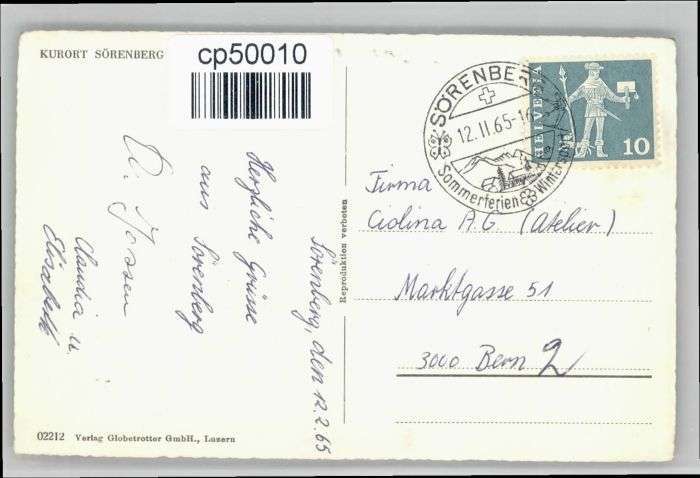 KURORT SÖRENBERG
cp50010
Sörenberg, den 12.2.65
Herzliche Grüsse
aus Sörenberg
Claudia u.
Elisabeth
Reproduktion verboten
SÖRENBERG
12.II.65-16
Sommerferien
HELVETIA
10
Firma
Ciolina A.G. (Atelier)
Marktgasse 51
3000 Bern 2
02212 Verlag Globetrotter GmbH., Luzern